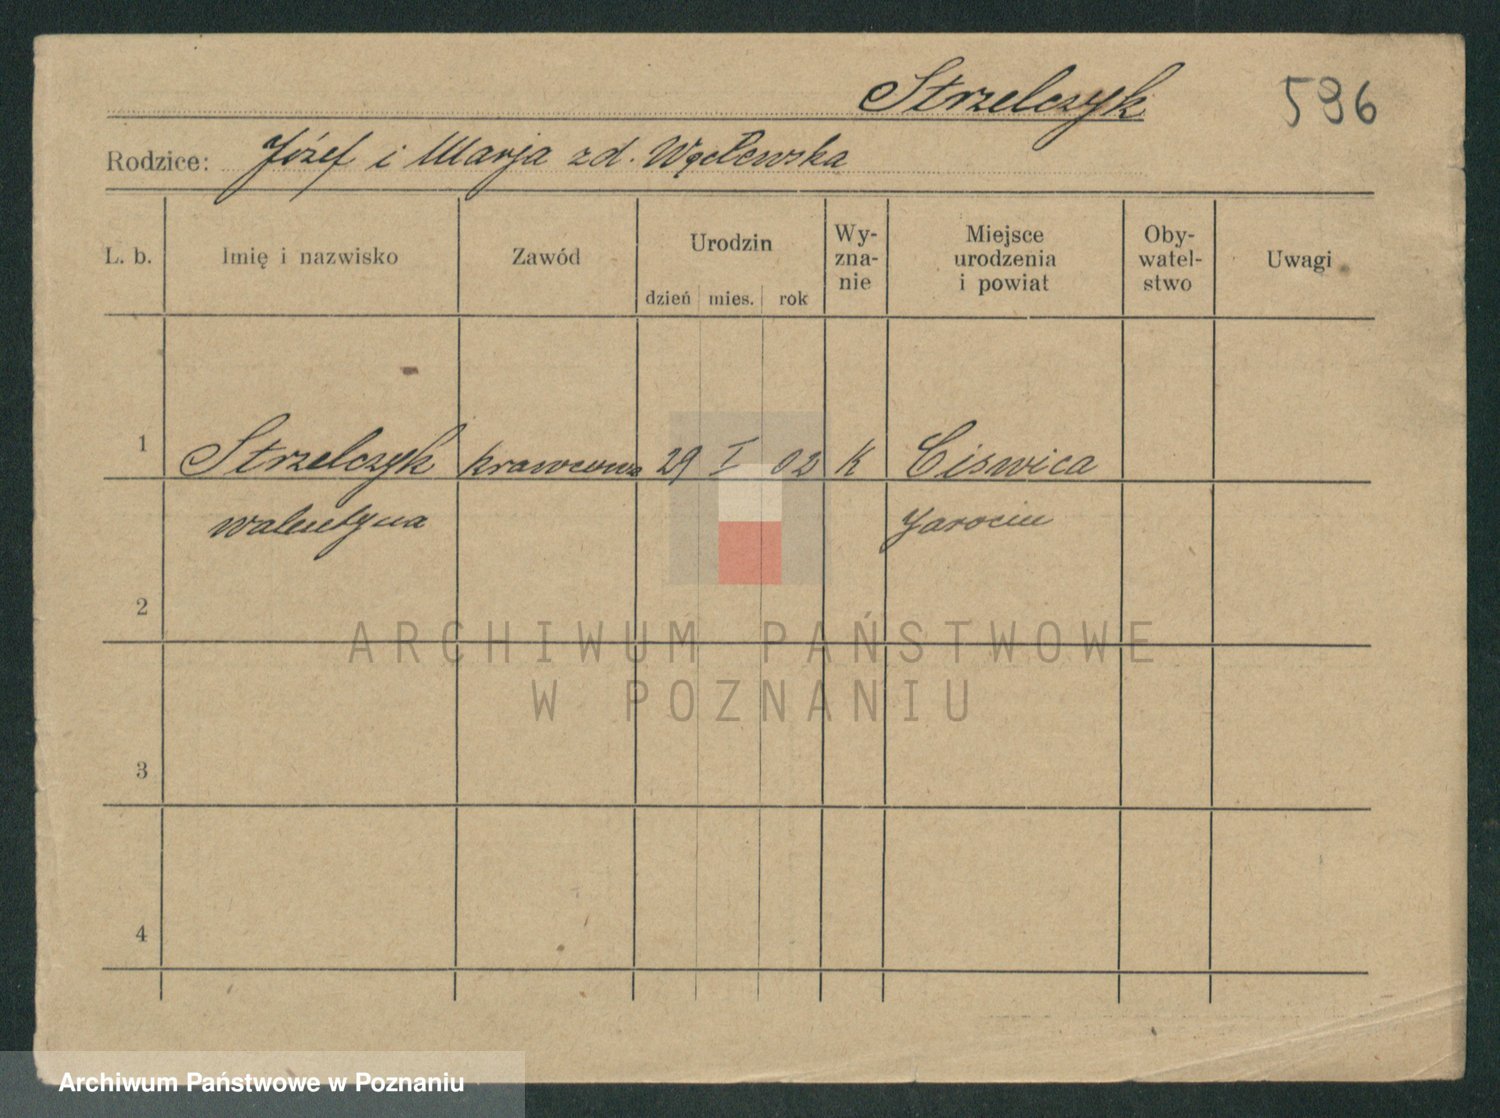 Strzelczyk 596
Rodzice: Józef i Marja zd. Węclewska
L. b. Imię i nazwisko Zawód Urodzin Wy- Miejsce Oby- Uwagi
zna- urodzenia watel-
nie i powiat stwo
dzień mies. rok
1 Strzelczyk krawcowa 29 I 02 K Ciswica
Walentyna Jarocin
2
ARCHIWUM PAŃSTWOWE
W POZNANIU
3
4
Archiwum Państwowe w Poznaniu